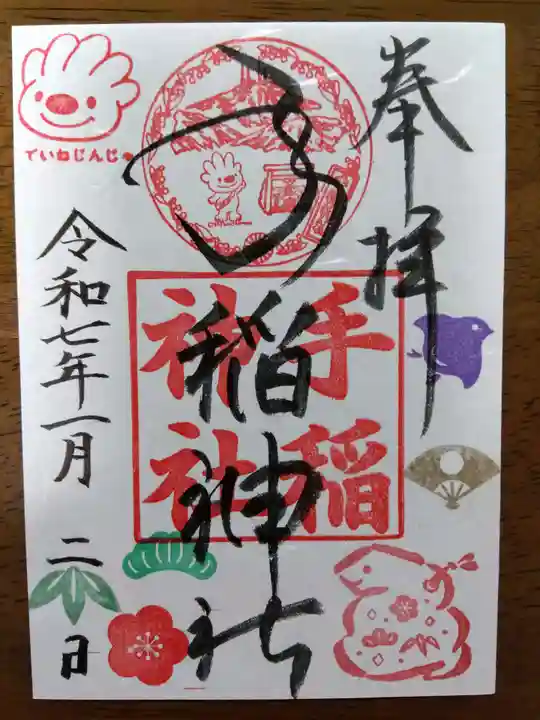 奉拝
手稲神社
手稲
神社
ていねじんじゃ
令和七年一月二日